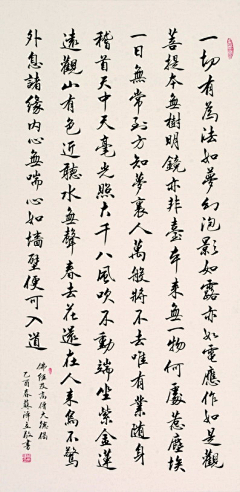 一切有為法如夢幻泡影如露亦如電應作如是觀
菩提本無樹明鏡亦非臺本來無一物何處惹塵埃
一日無常到方知夢裏人萬般將不去唯有業隨身
稽首天中天毫光照大千八風吹不動端坐紫金蓮
遠觀山有色近聽水無聲春去花還在人來鳥不驚
外息諸緣内心無喘心如墻壁便可入道
佛經及高僧大德偈
乙酉春蘇澤立敬書